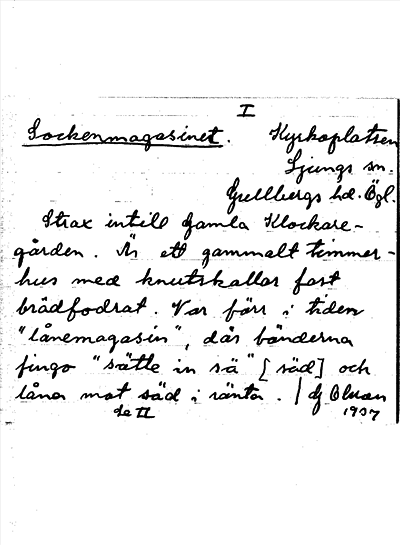 I
Sockenmagasinet. Kyrkoplatsen
Ljungs sn.
Gullbergs hd. Ögl.
Strax intill Gamla Klockare-
gården. Är ett gammalt timmer-
hus med knutskallar fast
brädfodrat. Var förr i tiden
"lånemagasin", där bönderna
fingo "sätte in sä" [säd] och
låna mot säd i ränta. / G Olson
se II 1937